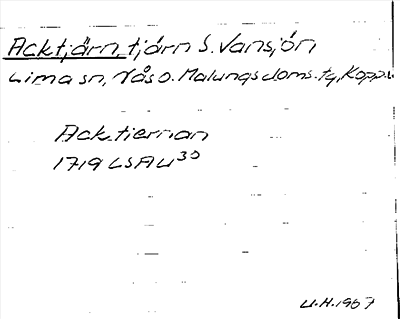 Acktjärn, tjärn S. Vansjön
Lima sn, Nås o. Malungs doms. tg, Kopp.
Ack tiernan
1719 LSA U 30
U.H. 1967